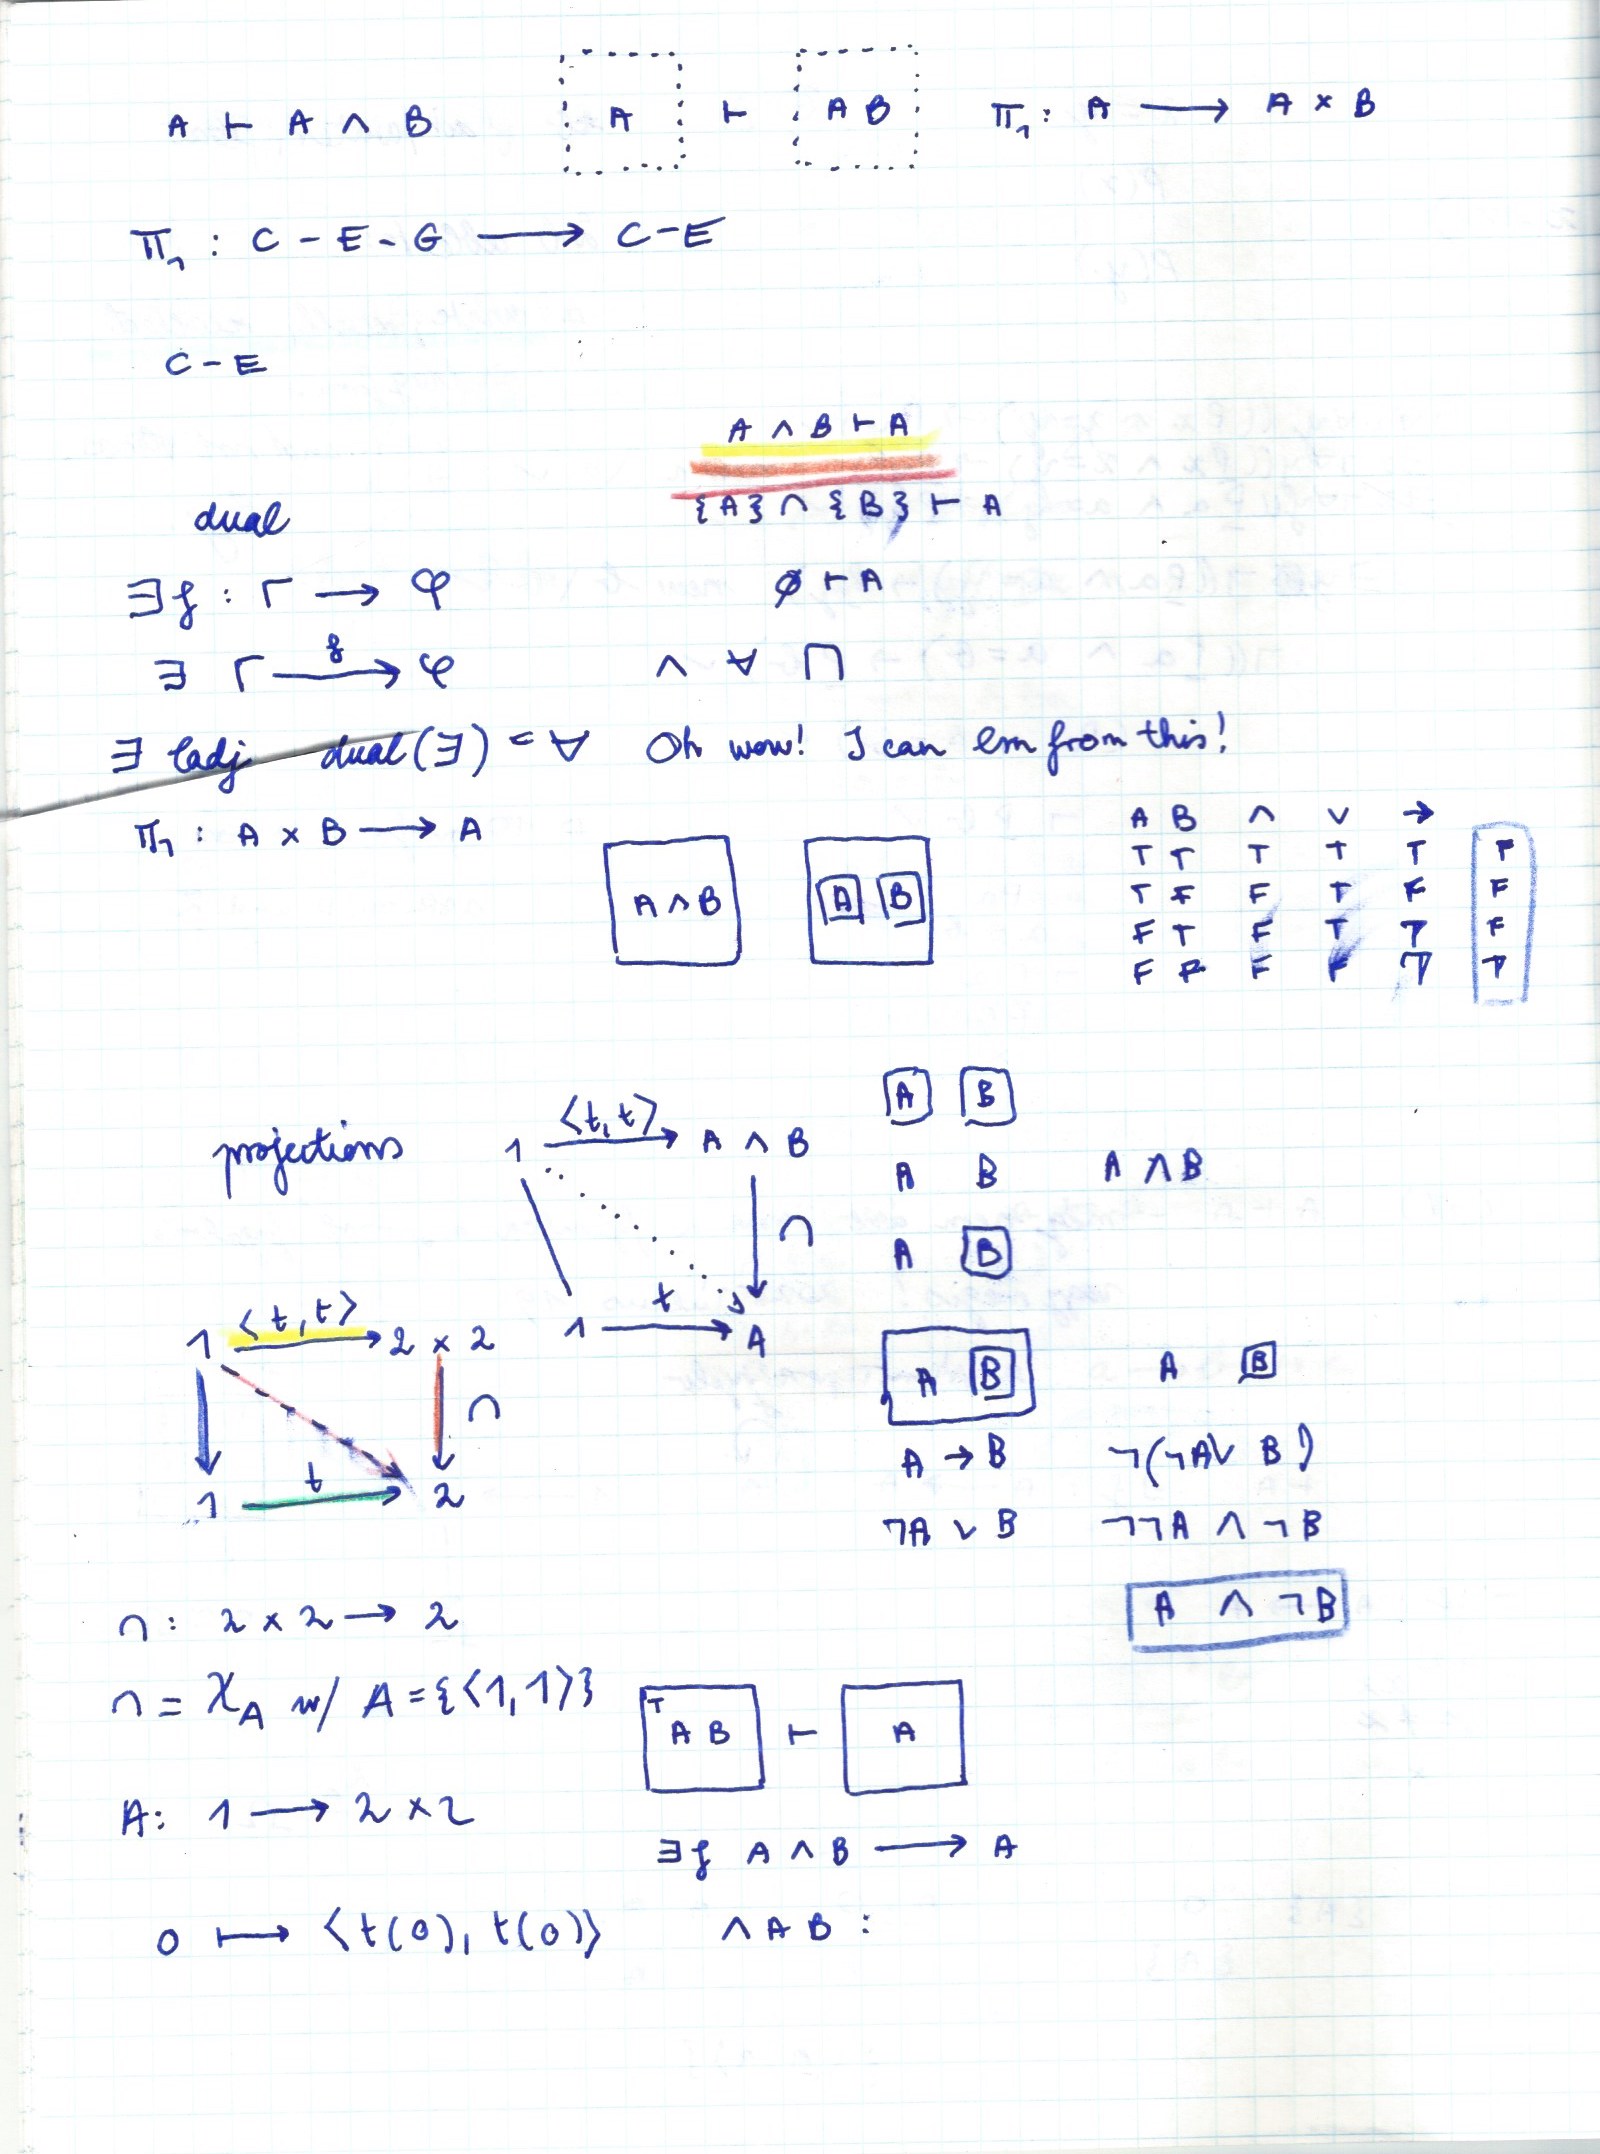 A ⊢ A ∧ B   A ⊢ A B   π₁ : A ⟶ A × B
π₁ : C - E - G ⟶ C - E
C - E
A ∧ B ⊢ A
{A} ∩ {B} ⊢ A
dual
∃f : Γ → φ   ∅ ⊢ A
∃ Γ —f→ φ   ∧ ∀ ∏
∃ ladj dual(∃) = ∀ Oh wow! I can from this!
π₁ : A × B ⟶ A
A ∧ B   A B
A B ∧ ∨ →
T T T T T F
T F F T F F
F T F T T F
F F F F T T
projections
1 ⟨t,t⟩ A ∧ B
∩
1 t A
A B
A B   A ∧ B
A B
1 ⟨t,t⟩ 2 × 2
∩
1 t 2
A B   A B
A → B   ¬(¬A∨ B)
¬A ∨ B   ¬¬A ∧ ¬B
A ∧ ¬B
∩ : 2 × 2 → 2
∩ = χ_A w/ A = {⟨1,1⟩}
T
A B ⊢ A
A : 1 ⟶ 2 × 2
∃f A ∧ B ⟶ A
0 ⟼ ⟨t(0), t(0)⟩   ∧ A B :